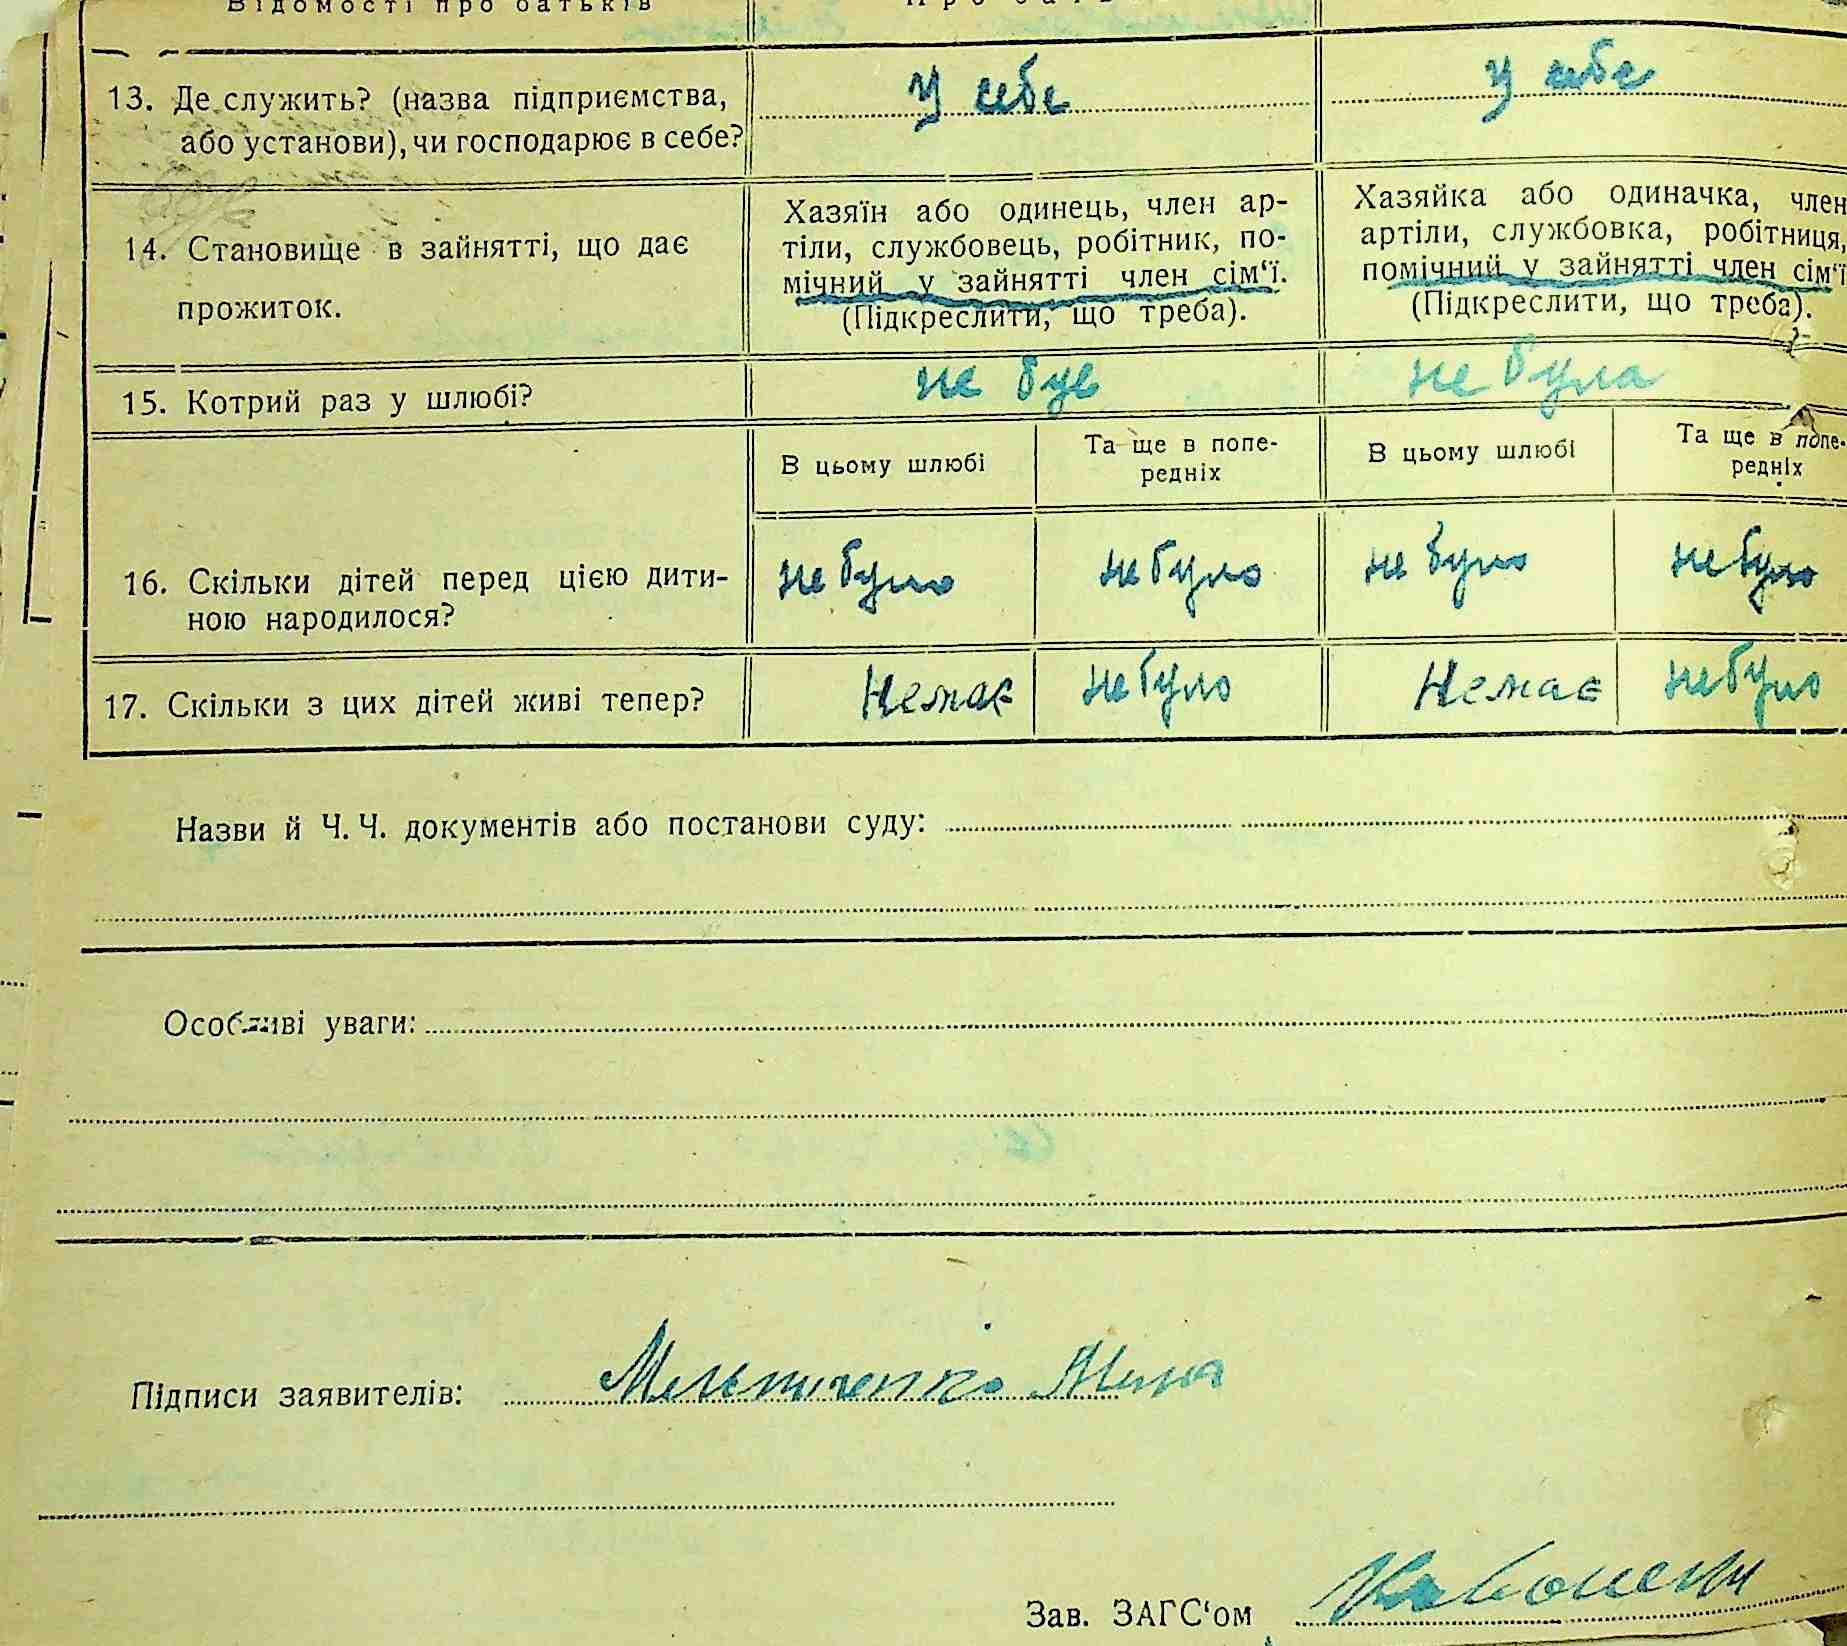 Відомості про батьків
13. Де служить? (назва підприємства,
або установи), чи господарює в себе?
У себе
У себе
14. Становище в зайнятті, що дає
прожиток.
Хазяїн або одинець, член ар-
тіли, службовець, робітник, по-
мічний у зайнятті член сім'ї.
(Підкреслити, що треба).
Хазяйка або одиначка, член
артіли, службовка, робітниця,
помічний у зайнятті член сім'ї
(Підкреслити, що треба).
15. Котрий раз у шлюбі?
не був
не була
В цьому шлюбі
Та ще в попе-
редніх
В цьому шлюбі
Та ще в попе-
редніх
16. Скільки дітей перед цією дити-
ною народилося?
не було
не було
не було
не було
17. Скільки з цих дітей живі тепер?
Немає
не було
Немає
не було
Назви й Ч. Ч. документів або постанови суду:
Особливі уваги:
Підписи заявителів: Мельниченко
Зав. ЗАГС'ом